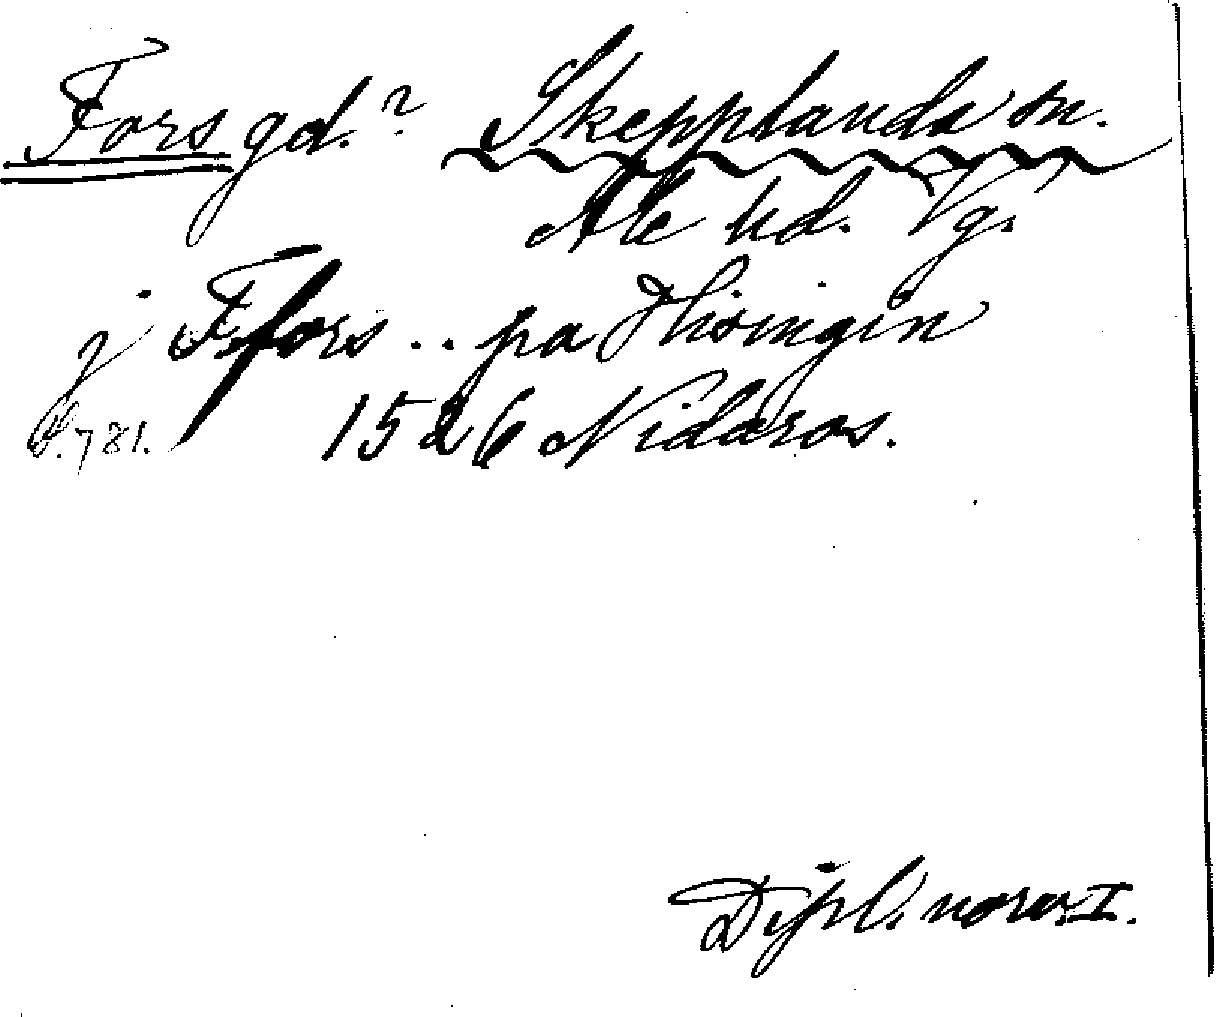 Fors gd.? Skepplanda sn.
Ale hd. Vg.
j Ffors .. pa Hisingin
S. 781. 1526 Nidaros.
Dipl. norv. I.